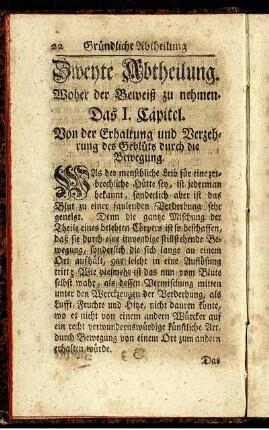 22 Gründliche Abtheilung
Zweyte Abtheilung.
Woher der Beweiß zu nehmen.
Das I. Capitel.
Von der Erhaltung und Verzeh-
rung des Geblüts durch die
Bewegung.
WAs der menschliche Leib für eine zer-
brechliche Hütte sey, ist jederman
bekannt, sonderlich aber ist das
Blut zu einer faulenden Verderbung sehr
geneigt. Denn die gantze Mischung der
Theile eines belebten Cörpers ist so beschaffen,
daß sie durch eine inwendige stillstehende Be-
wegung, sonderlich die sich lange an einem
Ort aufhält, gar leicht in eine Auflösung
tritt; Wie vielmehr ist das nun vom Blute
selbst wahr, als dessen Vermischung mitten
unter den Werckzeugen der Verderbung, als
Lufft, Feuchte und Hitze, nicht dauren könte,
wo es nicht von einem andern Würcker auf
ein recht verwundernswürdige künstliche Art
durch Bewegung von einem Ort zum andern
erhalten würde.
Das